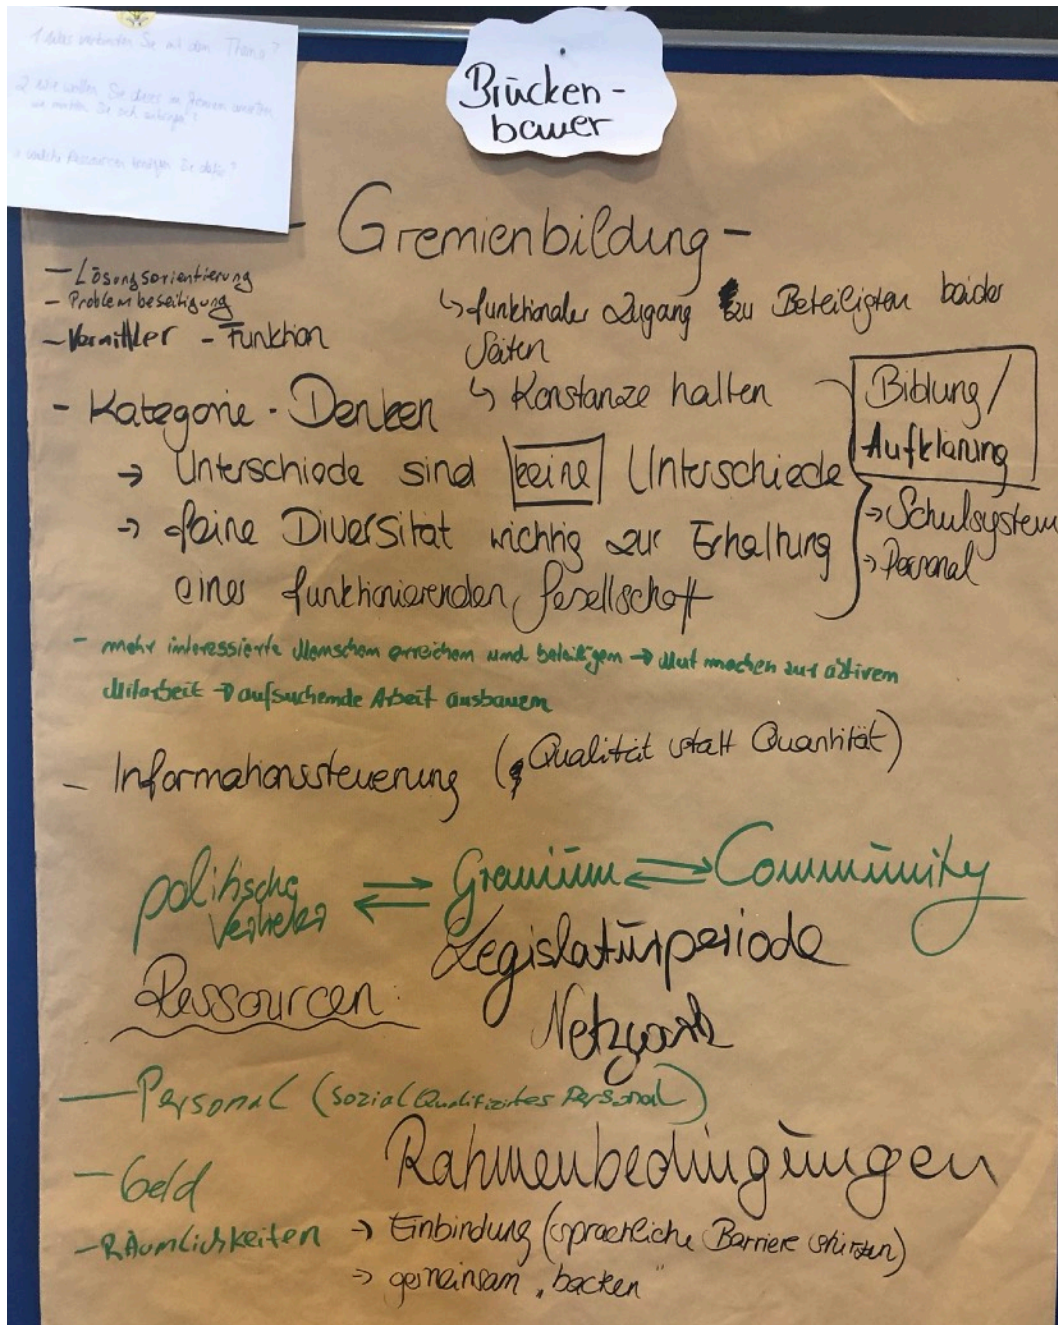 1. Was verbinden Sie mit dem Thema?
2. Wie wollen Sie dieses im Gremium umsetzen
Sie sich
Welche Ressourcen benötigen Sie dafür?
Brücken-
bauer
- Gremienbildung -
- Lösungsorientierung
- Problembeseitigung
- Vermittler - Funktion
↳ funktionaler Zugang zu Beteiligten beider
Seiten
↳ Konstanze halten
- Kategorie - Denken
→ Unterschiede sind keine Unterschiede
→ feine Diversität wichtig zur Erhaltung
einer funktionierenden Gesellschaft
Bildung/
Aufklärung
→ Schulsystem
→ Personal
- mehr interessierte Menschen erreichen und beteiligen → Mut machen zur aktiven
Mitarbeit → aufsuchende Arbeit ausbauen
- Informationssteuerung (Qualität statt Quantität)
politische
Vertreter ⇌ Gremium ⇌ Community
Legislaturperiode
Netzwerk
Ressourcen:
- Personal (sozial Qualifiziertes Personal)
- Geld
- Räumlichkeiten
Rahmenbedingungen
→ Einbindung (sprachliche Barriere stürzen)
→ gemeinsam „backen"